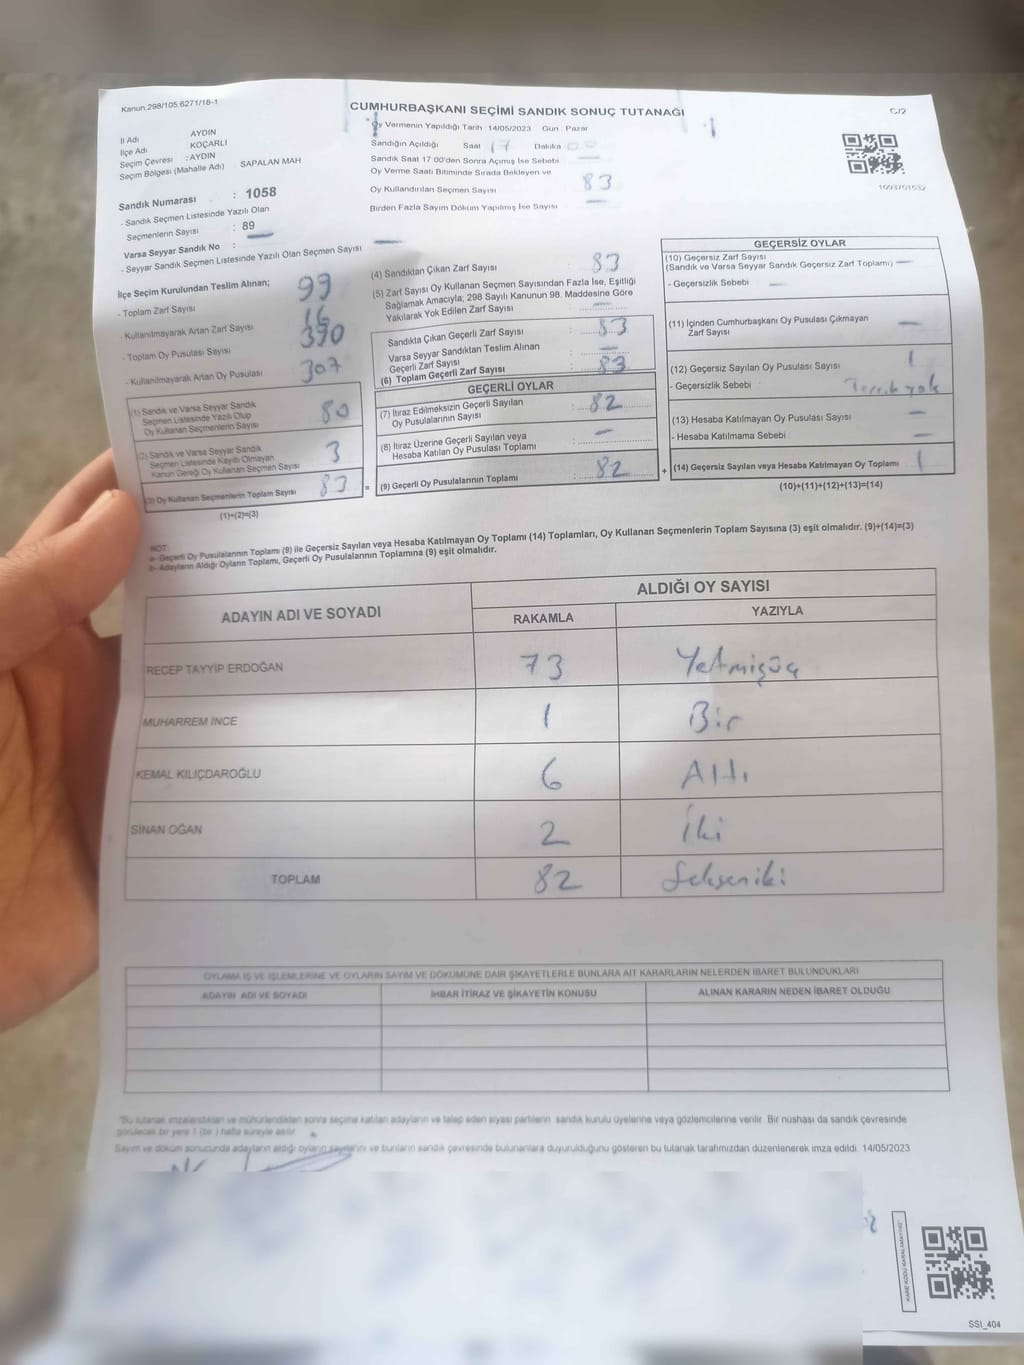 Kanun,298/105,6271/18-1
CUMHURBAŞKANI SEÇİMİ SANDIK SONUÇ TUTANAĞI
C/2
İl Adı AYDIN
İlçe Adı KOÇARLI
Seçim Çevresi : AYDIN
Seçim Bölgesi (Mahalle Adı) SAPALAN MAH
Sandık Numarası : 1058
- Sandık Seçmen Listesinde Yazılı Olan
Seçmenlerin Sayısı : 89
Varsa Seyyar Sandık No :
- Seyyar Sandık Seçmen Listesinde Yazılı Olan Seçmen Sayısı
Oy Vermenin Yapıldığı Tarih 14/05/2023 Gün Pazar
Sandığın Açıldığı Saat 17 Dakika 00
Sandık Saat 17.00'den Sonra Açımış İse Sebebi
Oy Verme Saati Bitiminde Sırada Bekleyen ve
Oy Kullandırılan Seçmen Sayısı 83
Birden Fazla Sayım Döküm Yapılmış İse Sayısı
1093701532
İlçe Seçim Kurulundan Teslim Alınan;
- Toplam Zarf Sayısı 99
- Kullanılmayarak Artan Zarf Sayısı 16
- Toplam Oy Pusulası Sayısı 390
- Kullanılmayarak Artan Oy Pusulası 307
(1) Sandık ve Varsa Seyyar Sandık
Seçmen Listesinde Yazılı Olup
Oy Kullanan Seçmenlerin Sayısı 80
(2) Sandık ve Varsa Seyyar Sandık
Seçmen Listesinde Kayıtlı Olmayan
Kanun Gereği Oy Kullanan Seçmen Sayısı 3
(3) Oy Kullanan Seçmenlerin Toplam Sayısı 83 =
(1)+(2)=(3)
(4) Sandıktan Çıkan Zarf Sayısı : 83
(5) Zarf Sayısı Oy Kullanan Seçmen Sayısından Fazla İse, Eşitliği
Sağlamak Amacıyla; 298 Sayılı Kanunun 98. Maddesine Göre
Yakılarak Yok Edilen Zarf Sayısı :
Sandıkta Çıkan Geçerli Zarf Sayısı : 83
Varsa Seyyar Sandıktan Teslim Alınan
Geçerli Zarf Sayısı :
(6) Toplam Geçerli Zarf Sayısı : 83
GEÇERLİ OYLAR
(7) İtiraz Edilmeksizin Geçerli Sayılan
Oy Pusulalarının Sayısı : 82
(8) İtiraz Üzerine Geçerli Sayılan veya
Hesaba Katılan Oy Pusulası Toplamı :
(9) Geçerli Oy Pusulalarının Toplamı : 82 +
GEÇERSİZ OYLAR
(10) Geçersiz Zarf Sayısı
(Sandık ve Varsa Seyyar Sandık Geçersiz Zarf Toplamı)
- Geçersizlik Sebebi
(11) İçinden Cumhurbaşkanı Oy Pusulası Çıkmayan
Zarf Sayısı
(12) Geçersiz Sayılan Oy Pusulası Sayısı 1
- Geçersizlik Sebebi : Tercih yok
(13) Hesaba Katılmayan Oy Pusulası Sayısı
- Hesaba Katılmama Sebebi :
(14) Geçersiz Sayılan veya Hesaba Katılmayan Oy Toplamı 1
(10)+(11)+(12)+(13)=(14)
NOT:
a- Geçerli Oy Pusulalarının Toplamı (9) ile Geçersiz Sayılan veya Hesaba Katılmayan Oy Toplamı (14) Toplamları, Oy Kullanan Seçmenlerin Toplam Sayısına (3) eşit olmalıdır. (9)+(14)=(3)
b- Adayların Aldığı Oyların Toplamı, Geçerli Oy Pusulalarının Toplamına (9) eşit olmalıdır.
ADAYIN ADI VE SOYADI
ALDIĞI OY SAYISI
RAKAMLA YAZIYLA
RECEP TAYYİP ERDOĞAN 73 Yetmişüç
MUHARREM İNCE 1 Bir
KEMAL KILIÇDAROĞLU 6 Altı
SİNAN OĞAN 2 İki
TOPLAM 82 Seksen iki
OYLAMA İŞ VE İŞLEMLERİNE VE OYLARIN SAYIM VE DÖKÜMÜNE DAİR ŞİKAYETLERLE BUNLARA AİT KARARLARIN NELERDEN İBARET BULUNDUKLARI
ADAYIN ADI VE SOYADI İHBAR İTİRAZ VE ŞİKAYETİN KONUSU ALINAN KARARIN NEDEN İBARET OLDUĞU
"Bu tutanak imzalandıktan ve mühürlendikten sonra seçime katılan adayların ve talep eden siyasi partilerin sandık kurulu üyelerine veya gözlemcilerine verilir. Bir nüshası da sandık çevresinde
görülecek bir yere 1 (bir ) hafta süreyle asılır.
Sayım ve döküm sonucunda adayların aldığı oyların sayılarını ve bunların sandık çevresinde bulunanlara duyurulduğunu gösteren bu tutanak tarafımızdan düzenlenerek imza edildi. 14/05/2023
KARE KODU KARALAMAYINIZ
SSI_404